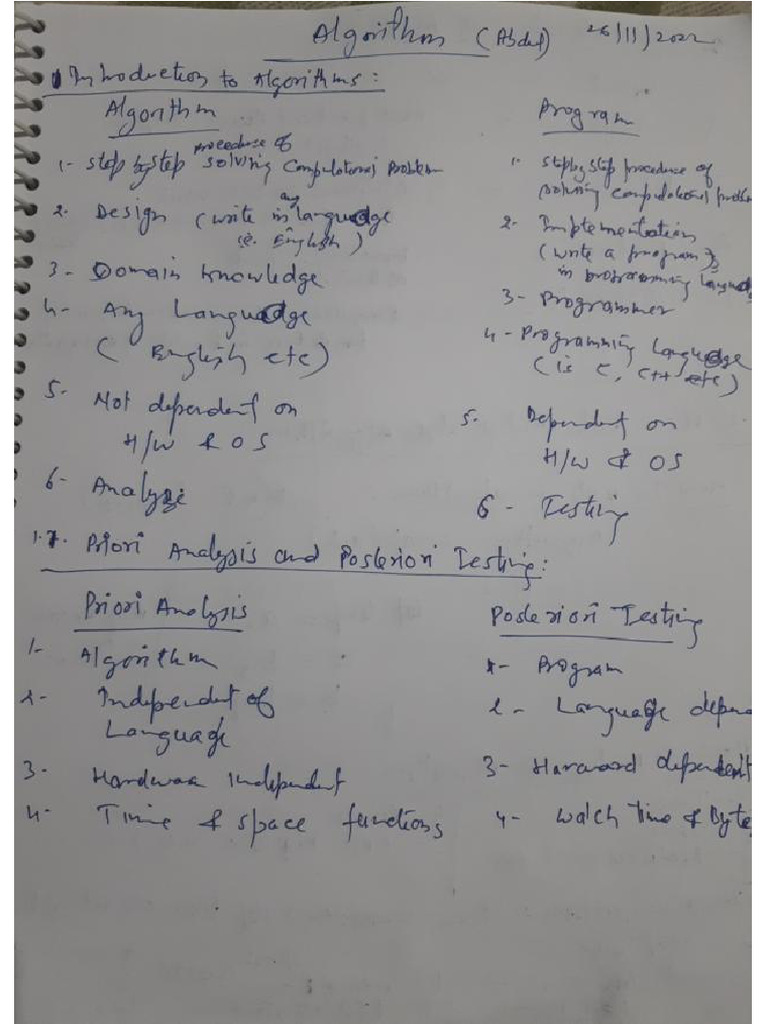 Algorithm (Abdul) 26/11/2022
Introduction to Algorithms:
Algorithm
1- step by step procedure of solving Computational Problem
2- Design (write in any language
ie. English)
3- Domain Knowledge
4- Any Language
( English etc)
5- Not dependent on
H/W & OS
6- Analyze
Program
1- step by step procedure of
solving computational proble
2- Implementation
(write a program
in programming language
3- Programmer
4- Programming Language
(is C, C++ etc)
5. Dependent on
H/W & OS
6- Testing
1.7. Priori Analysis and Posteriori Testing:
Priori Analysis
1- Algorithm
2- Independent of
Language
3- Hardwaa independent
4- Time & space functions
Posteriori Testing
1- Program
2- Language depen
3- Harward dependent
4- Watch Time & Byte